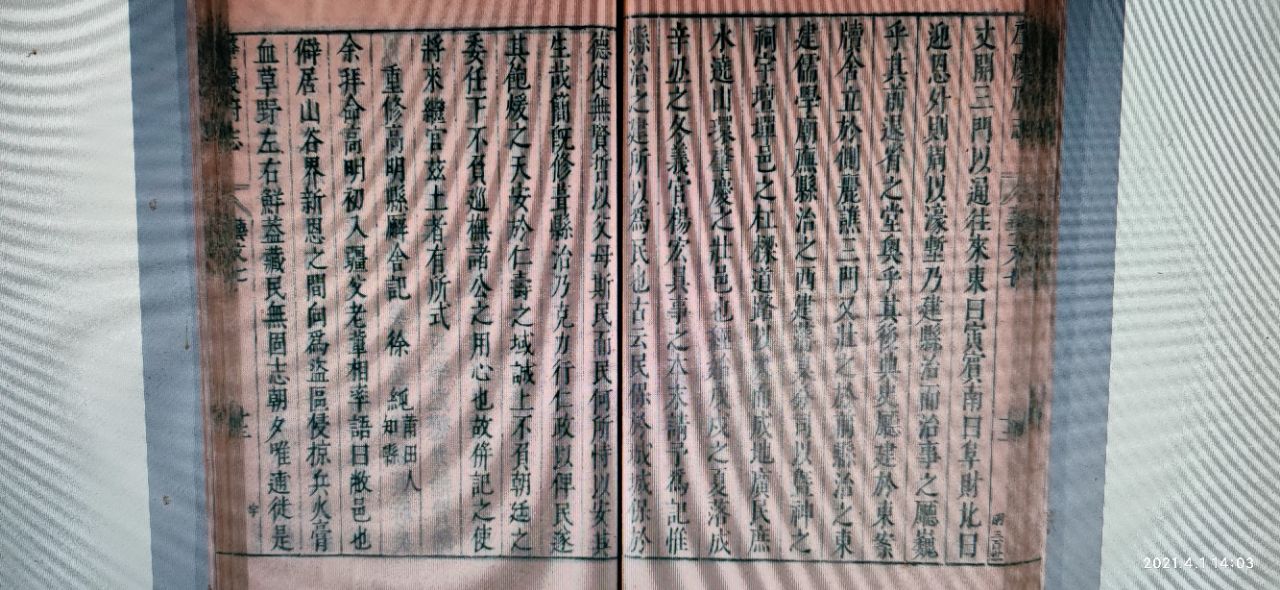 丈開三門以通往來東曰寅賓南曰阜財北曰
迎恩外則有以濠塹乃建縣治而治事之廳巍
乎其前退省之堂奐乎其後典吏廳建於東案
牘舍立於側麗譙三門又壯之於前縣治之東
建儒學廟廡縣治之西建藩臬分司以暨神之
祠宇壇墠邑之杠樑道路以次而成地廣民庶
水遶山環肇慶之壯邑也經始戊戌之夏落成
辛丑之冬義官楊宏具事之本末請予為記惟
縣治之建所以為民也古云民保於城城保於
德使無賢所以父母斯民而民何所恃以安其
生哉簡既修葺縣治乃克力行仁政以俾民遂
其飽煖之天安於仁壽之域誠上不負朝廷之
委任下不負巡撫諸公之用心也故併記之使
將來繼官茲土者有所式
重修高明縣廨舍記 徐 純 莆田人 知縣
余拜命高明初入疆父老輩相率語曰敝邑也
僻居山谷界新恩之間向為盜區侵掠兵火膏
血草野左右鮮蓋藏民無固志朝夕唯遷徙是
肇慶府志
2021.4.1 14:03